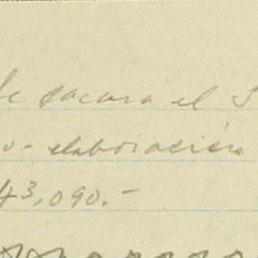 le sacara el S
o- elaboración
43,090.-